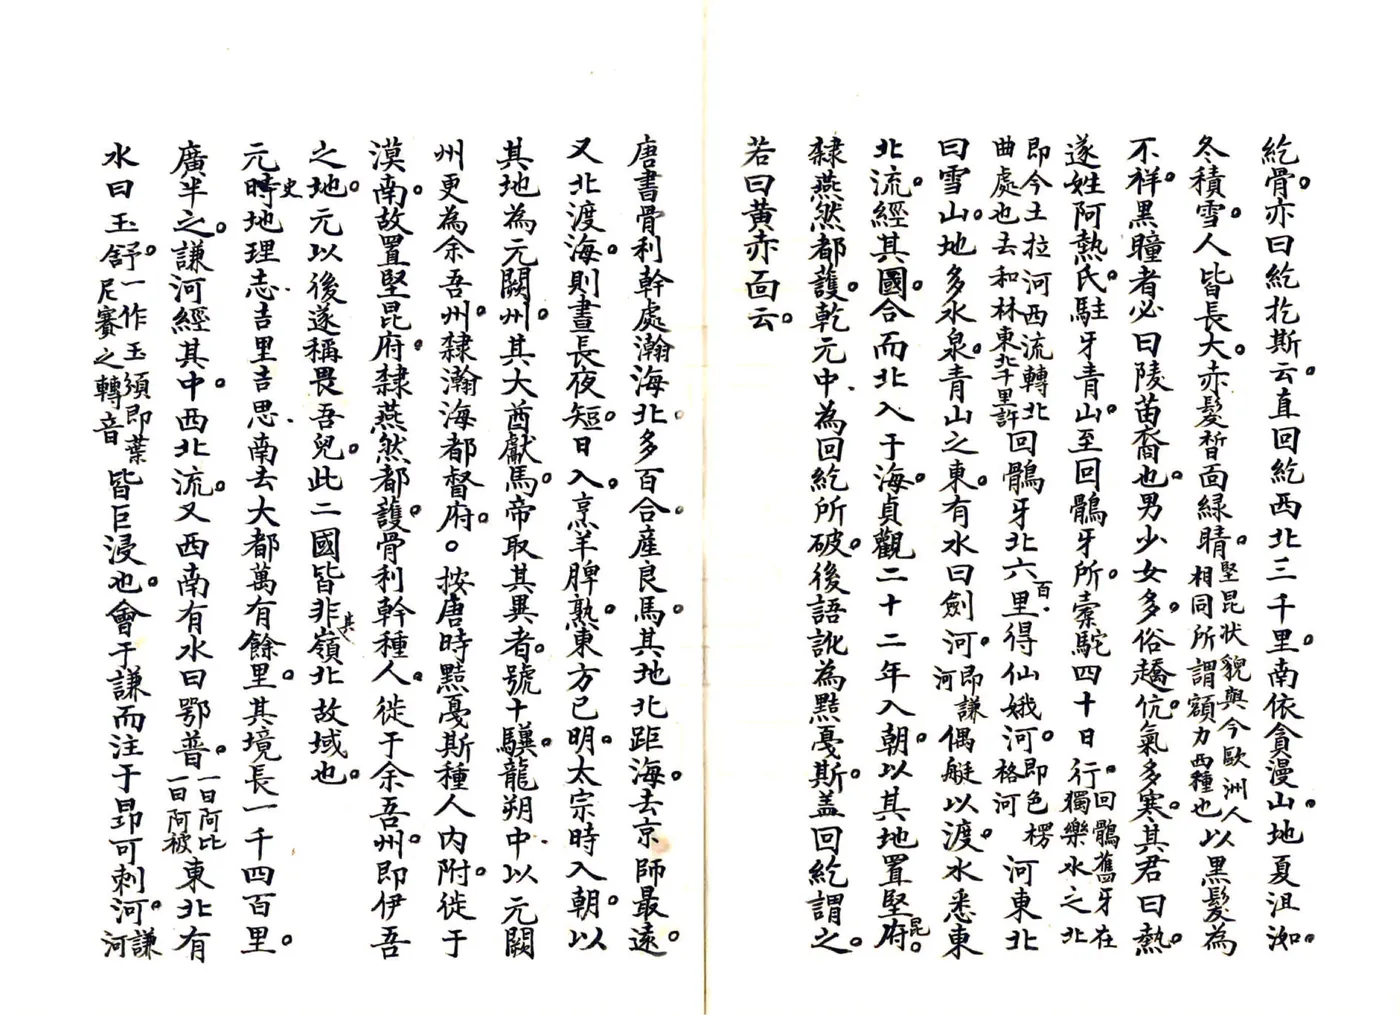 紇骨。亦曰紇扢斯云。直回紇西北三千里。南依貪漫山。地夏沮洳。
冬積雪。人皆長大。赤髮皙面綠睛。堅昆狀貌與今歐洲人相同所謂額力西種也以黑髮為
不祥。黑瞳者必曰陵苗裔也。男少女多。俗趫伉。氣多寒。其君曰熱。
遂姓阿熱氏。駐牙青山。至回鶻牙所。橐駝四十日行。回鶻舊牙在獨樂水之北
即今土拉河西流轉北曲處也去和林東北千里許回鶻牙北六百里得仙娥河。即色楞格河河東北
曰雪山。地多水泉。青山之東。有水曰劍河。即謙河偶艇以渡。水悉東
北流。經其國。合而北入于海。貞觀二十二年入朝。以其地置堅昆府。
隸燕然都護。乾元中。為回紇所破。後語訛為黠戛斯。盖回紇謂之。
若曰黃赤面云。
唐書骨利幹處瀚海北。多百合。產良馬。其地北距海。去京師最遠。
又北渡海。則晝長夜短。日入。烹羊脾熟。東方已明。太宗時入朝。以
其地為元闕州。其大酋獻馬。帝取其異者。號十驥。龍朔中。以元闕
州更為余吾州。隸瀚海都督府。。按唐時黠戛斯種人內附。徙于
漠南。故置堅昆府。隸燕然都護。骨利幹種人。徙于余吾州。即伊吾
之地。元以後遂稱畏吾兒。此二國皆非其嶺北故域也。
元史時地理志。吉里吉思。南去大都萬有餘里。其境長一千四百里。
廣半之。謙河經其中。西北流。又西南有水曰鄂普。一曰阿比一曰阿被東北有
水曰玉舒。一作玉須即葉尼賽之轉音皆巨浸也。會于謙而注于昂可剌河。謙河